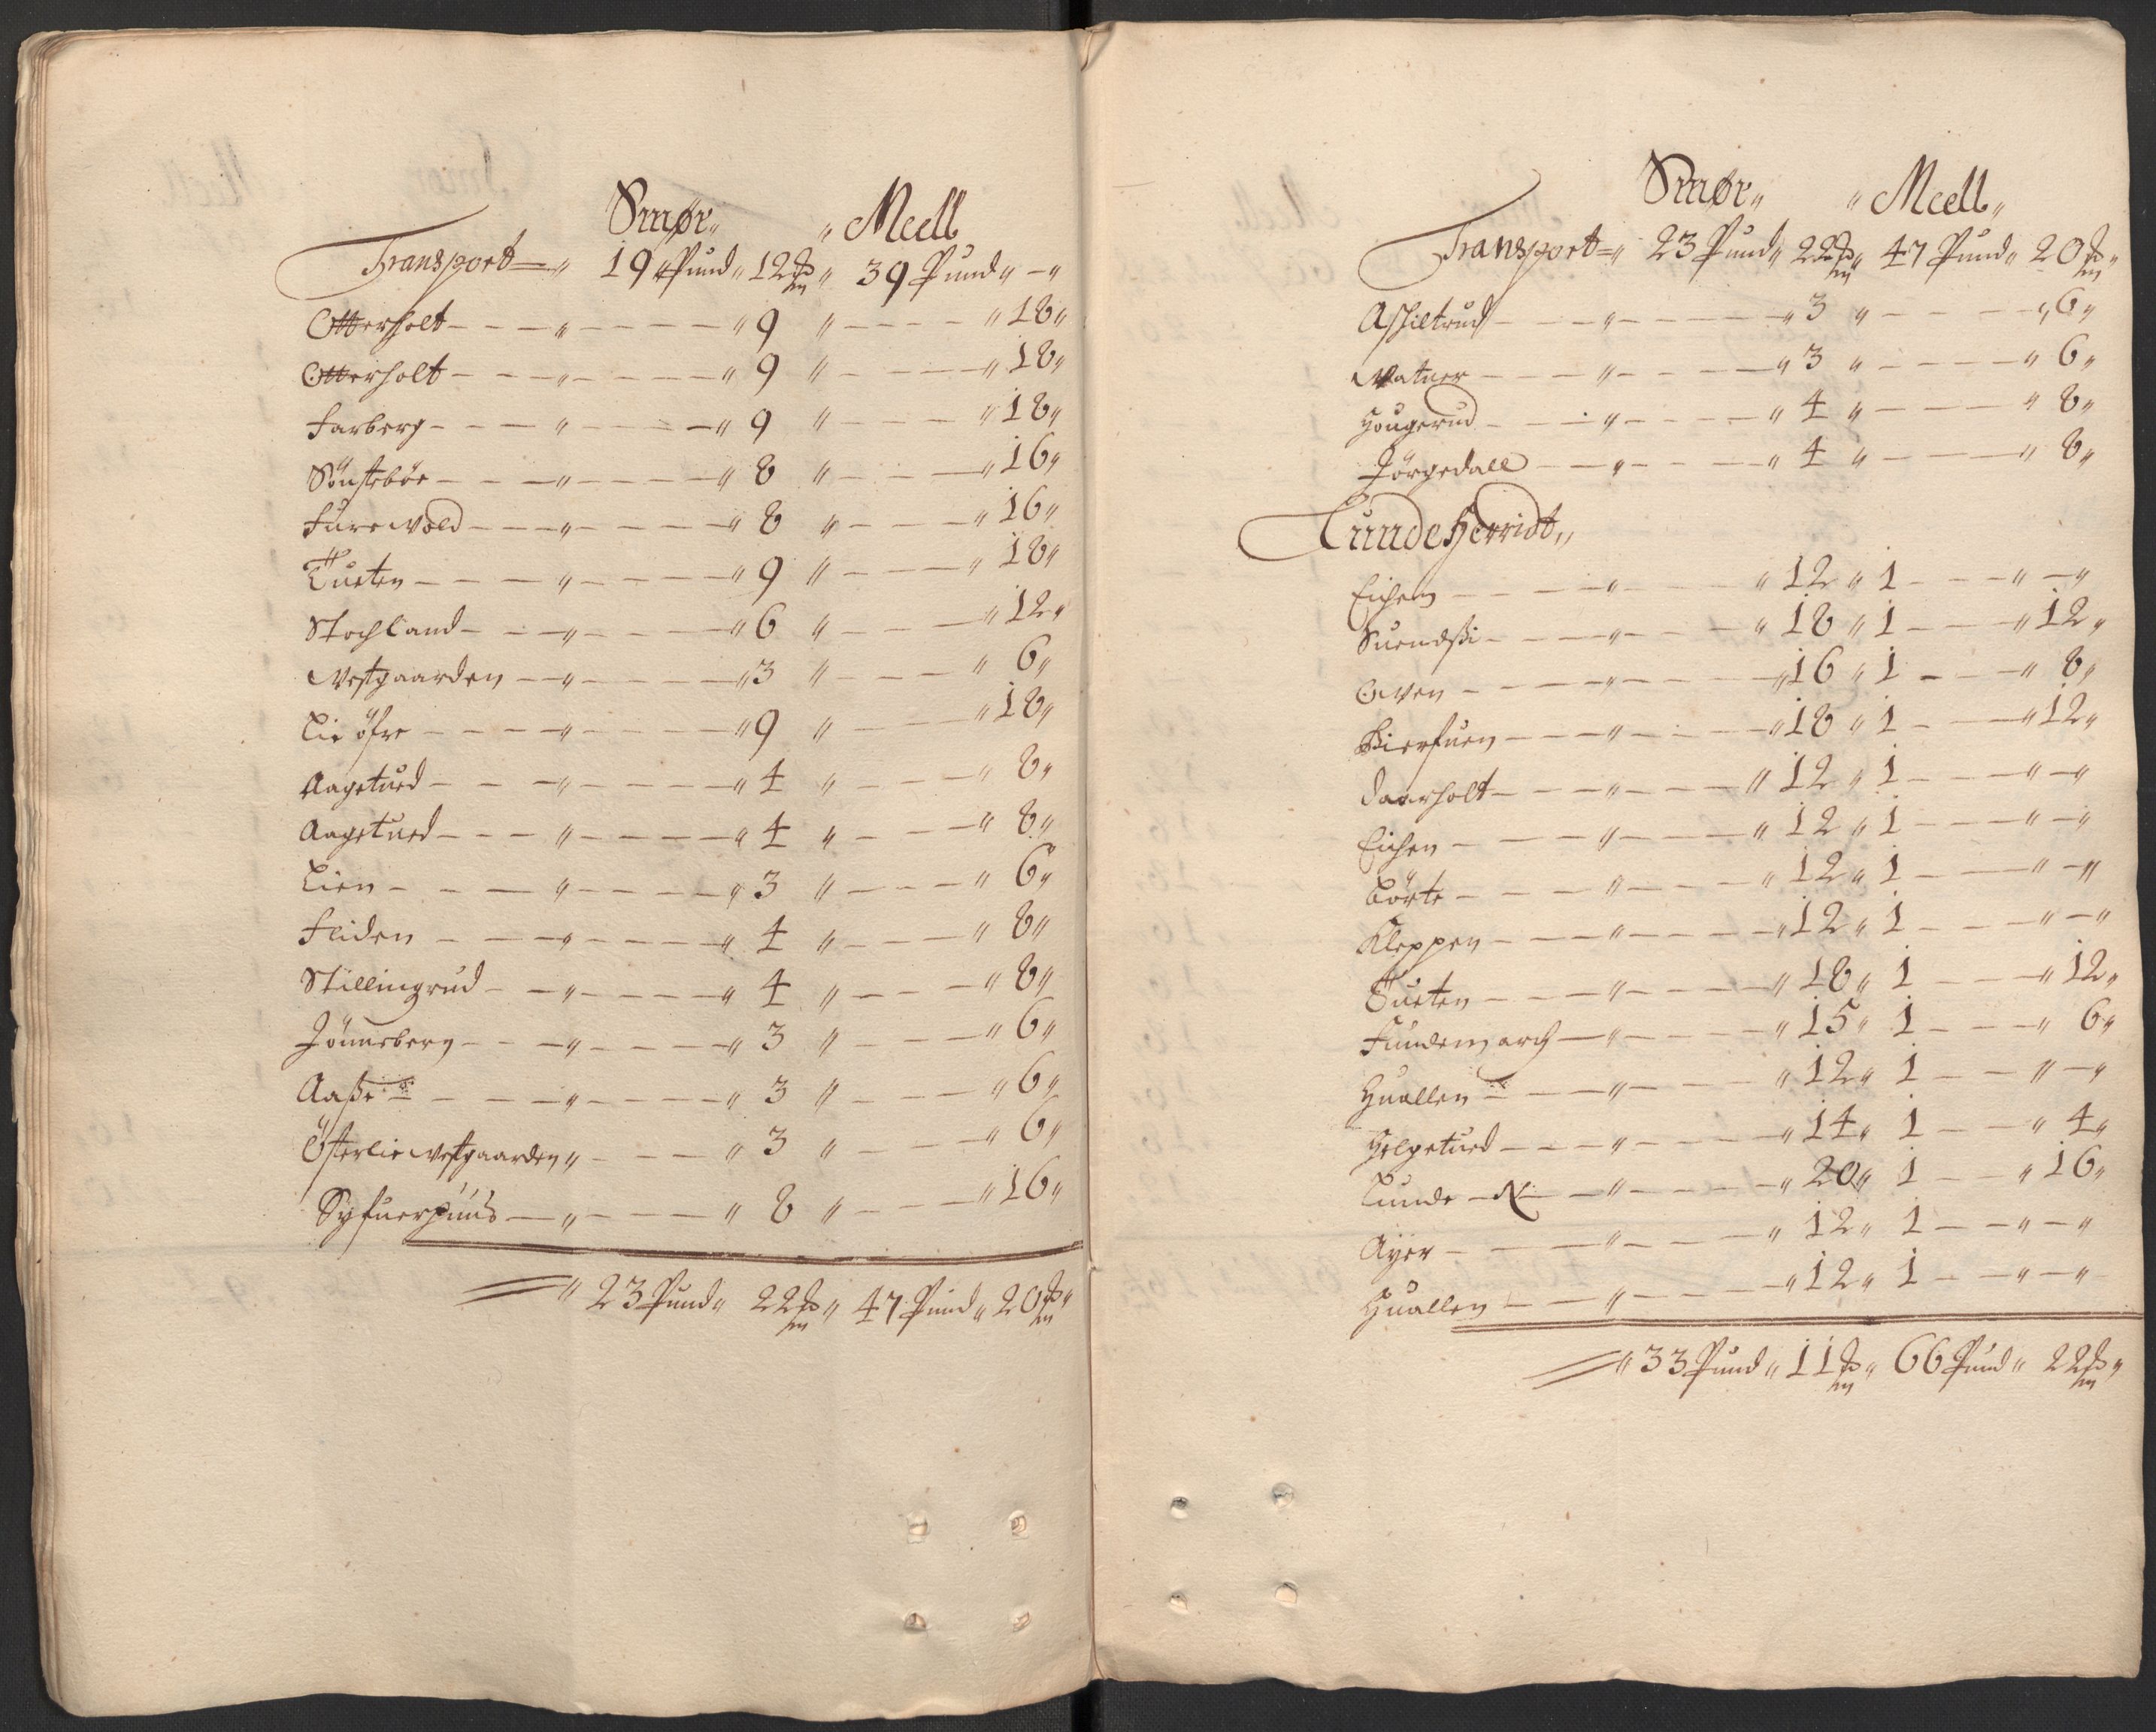 Smør „ „ Meell
Transport = „ 19 Pund „ 12 „ 39 Pund „ — „
Otterholt — — — „ — — — — „ 9 „ — — — „ 18 „
Otterholt — — — „ — — — — „ 9 „ — — — „ 18 „
Farberg — — — „ — — — „ 9 „ — — — „ 18 „
Sönsteböe — — — „ — — — — „ 8 „ — — — „ 16 „
Furewold — — — „ — — — — „ 8 „ — — — „ 16 „
Tueten — — — „ — — — — „ 9 „ — — — „ 18 „
Stochland — — „ — — — — „ 6 „ — — — „ 12 „
Westgaarden — — „ — — — — „ 3 „ — — — „ 6 „
Lie öfre — — — „ — — — — „ 9 „ — — — „ 18 „
Aagetued — — — „ — — — — „ 4 „ — — — „ 8 „
Aagetued — — — „ — — — — „ 4 „ — — — „ 8 „
Lien — — — „ — — — — „ 3 „ — — — „ 6 „
Fliden — — — „ — — — — „ 4 „ — — — „ 8 „
Stillingrud — — „ — — — — „ 4 „ — — — „ 8 „
Jönneberg — — — „ — — — — „ 3 „ — — — „ 6 „
Aaße — — — „ — — — — „ 3 „ — — — „ 6 „
Österlie Westgaarden „ — — — „ 3 „ — — — „ 6 „
Syfuerhuus — „ — — — „ 8 „ — — — „ 16 „
= „ 23 Pund „ 22 „ 47 Pund „ 20 „
Smør „ „ Meell „
Transport = „ 23 Pund „ 22 „ 47 Pund „ 20 „
Aschiltrud — — — „ — — — „ 3 „ — — — „ 6 „
Watner — — — „ — — — „ 3 „ — — — „ 6 „
Hougerud — — — „ — — — „ 4 „ — — — „ 8 „
Jörgedall — — „ — — — „ 4 „ — — — „ 8 „
Lunde Herridt „
Eichem — — — „ — — — „ 12 „ 1 — — — „ — „
Suendßi — — — „ — — — „ 18 „ 1 — — — „ 12 „
Owen — — — „ — — — „ 16 „ 1 — — — „ 8 „
Kierfuen — — — „ — — — „ 18 „ 1 — — — „ 12 „
Daarholt — — — „ — — — „ 12 „ 1 — — — „ — „
Eichen — — — „ — — — „ 12 „ 1 — — — „ — „
Börte — — — „ — — — „ 12 „ 1 — — — „ — „
Kleppen — — — „ — — — „ 12 „ 1 — — — „ — „
Tueten — — — „ — — — „ 18 „ 1 — — — „ 12 „
Fundemarch — „ — — — „ 15 „ 1 — — — „ 6 „
Huallen — — „ — — — „ 12 „ 1 — — „ — „
Helgetued — — — „ — — — „ 14 „ 1 — — „ 4 „
Lunde — N: — „ — — — „ 20 „ 1 — — „ 16 „
Ayer — — — „ — — — „ 12 „ 1 — — „ — „
Huallen — — „ — — — „ 12 „ 1 — — „ — „
= „ 33 Pund „ 11 „ 66 Pund „ 22 „